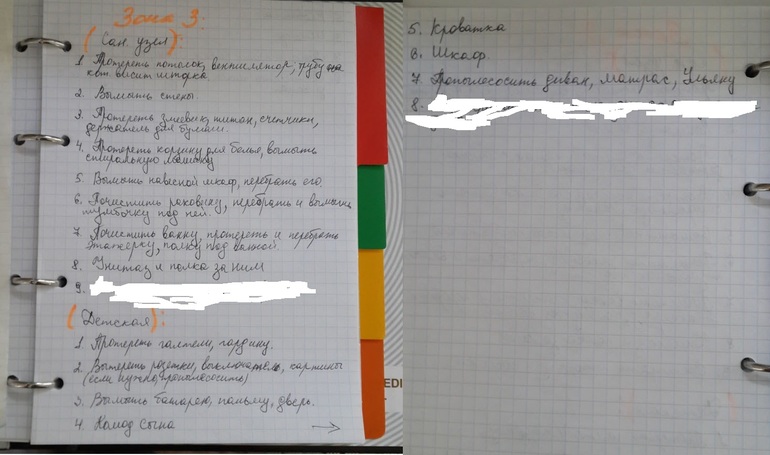 Зона 3.
(Сан. узел):
1. Протереть потолок, вентилятор, трубу на
кот. висит шторка
2. Вымыть стены.
3. Протереть змеевик, титан, счетчики,
держатель для бумаги.
4. Протереть корзину для белья, вымыть
стиральную машинку
5. Вымыть навесной шкаф, перебрать его
6. Почистить раковину, перебрать и вымыть
тумбочку под ней.
7. Почистить ванну, протереть и перебрать
этажерку, полку под ванной.
8. Унитаз и полка за ним
9.
(Детская):
1. Протереть галтели, гардину.
2. Вытереть розетки, выключатель, картины
(если нужно, пропылесосить)
3. Вымыть батарею, пальму, дверь.
4. Комод сына
5. Кроватка
6. Шкаф.
7. Пропылесосить диван, матрас,
8.
EDI